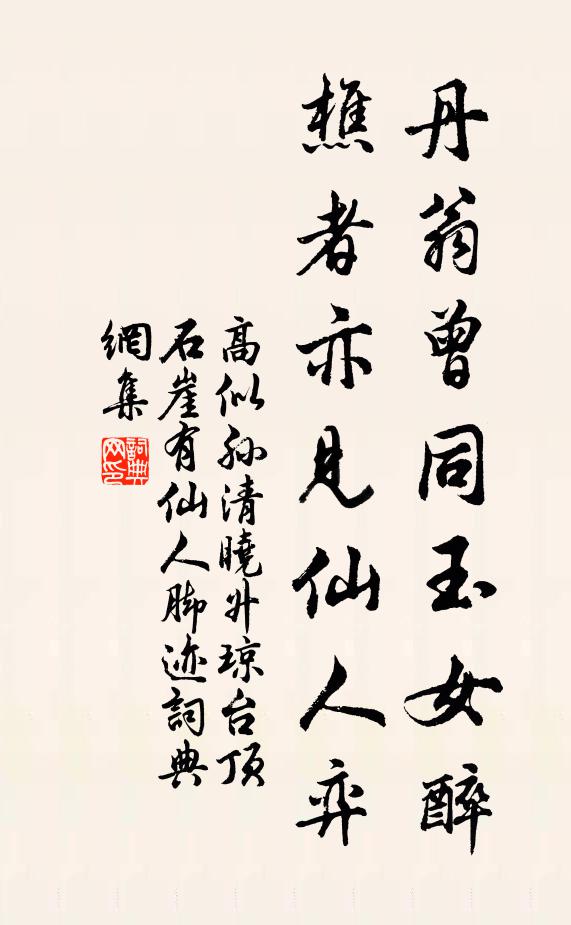 丹翁曾同玉女醉
樵者亦見仙人弈
高似孫清曉外琼台頂
石崖有仙人脚迹詞典
網集
詞典
网印